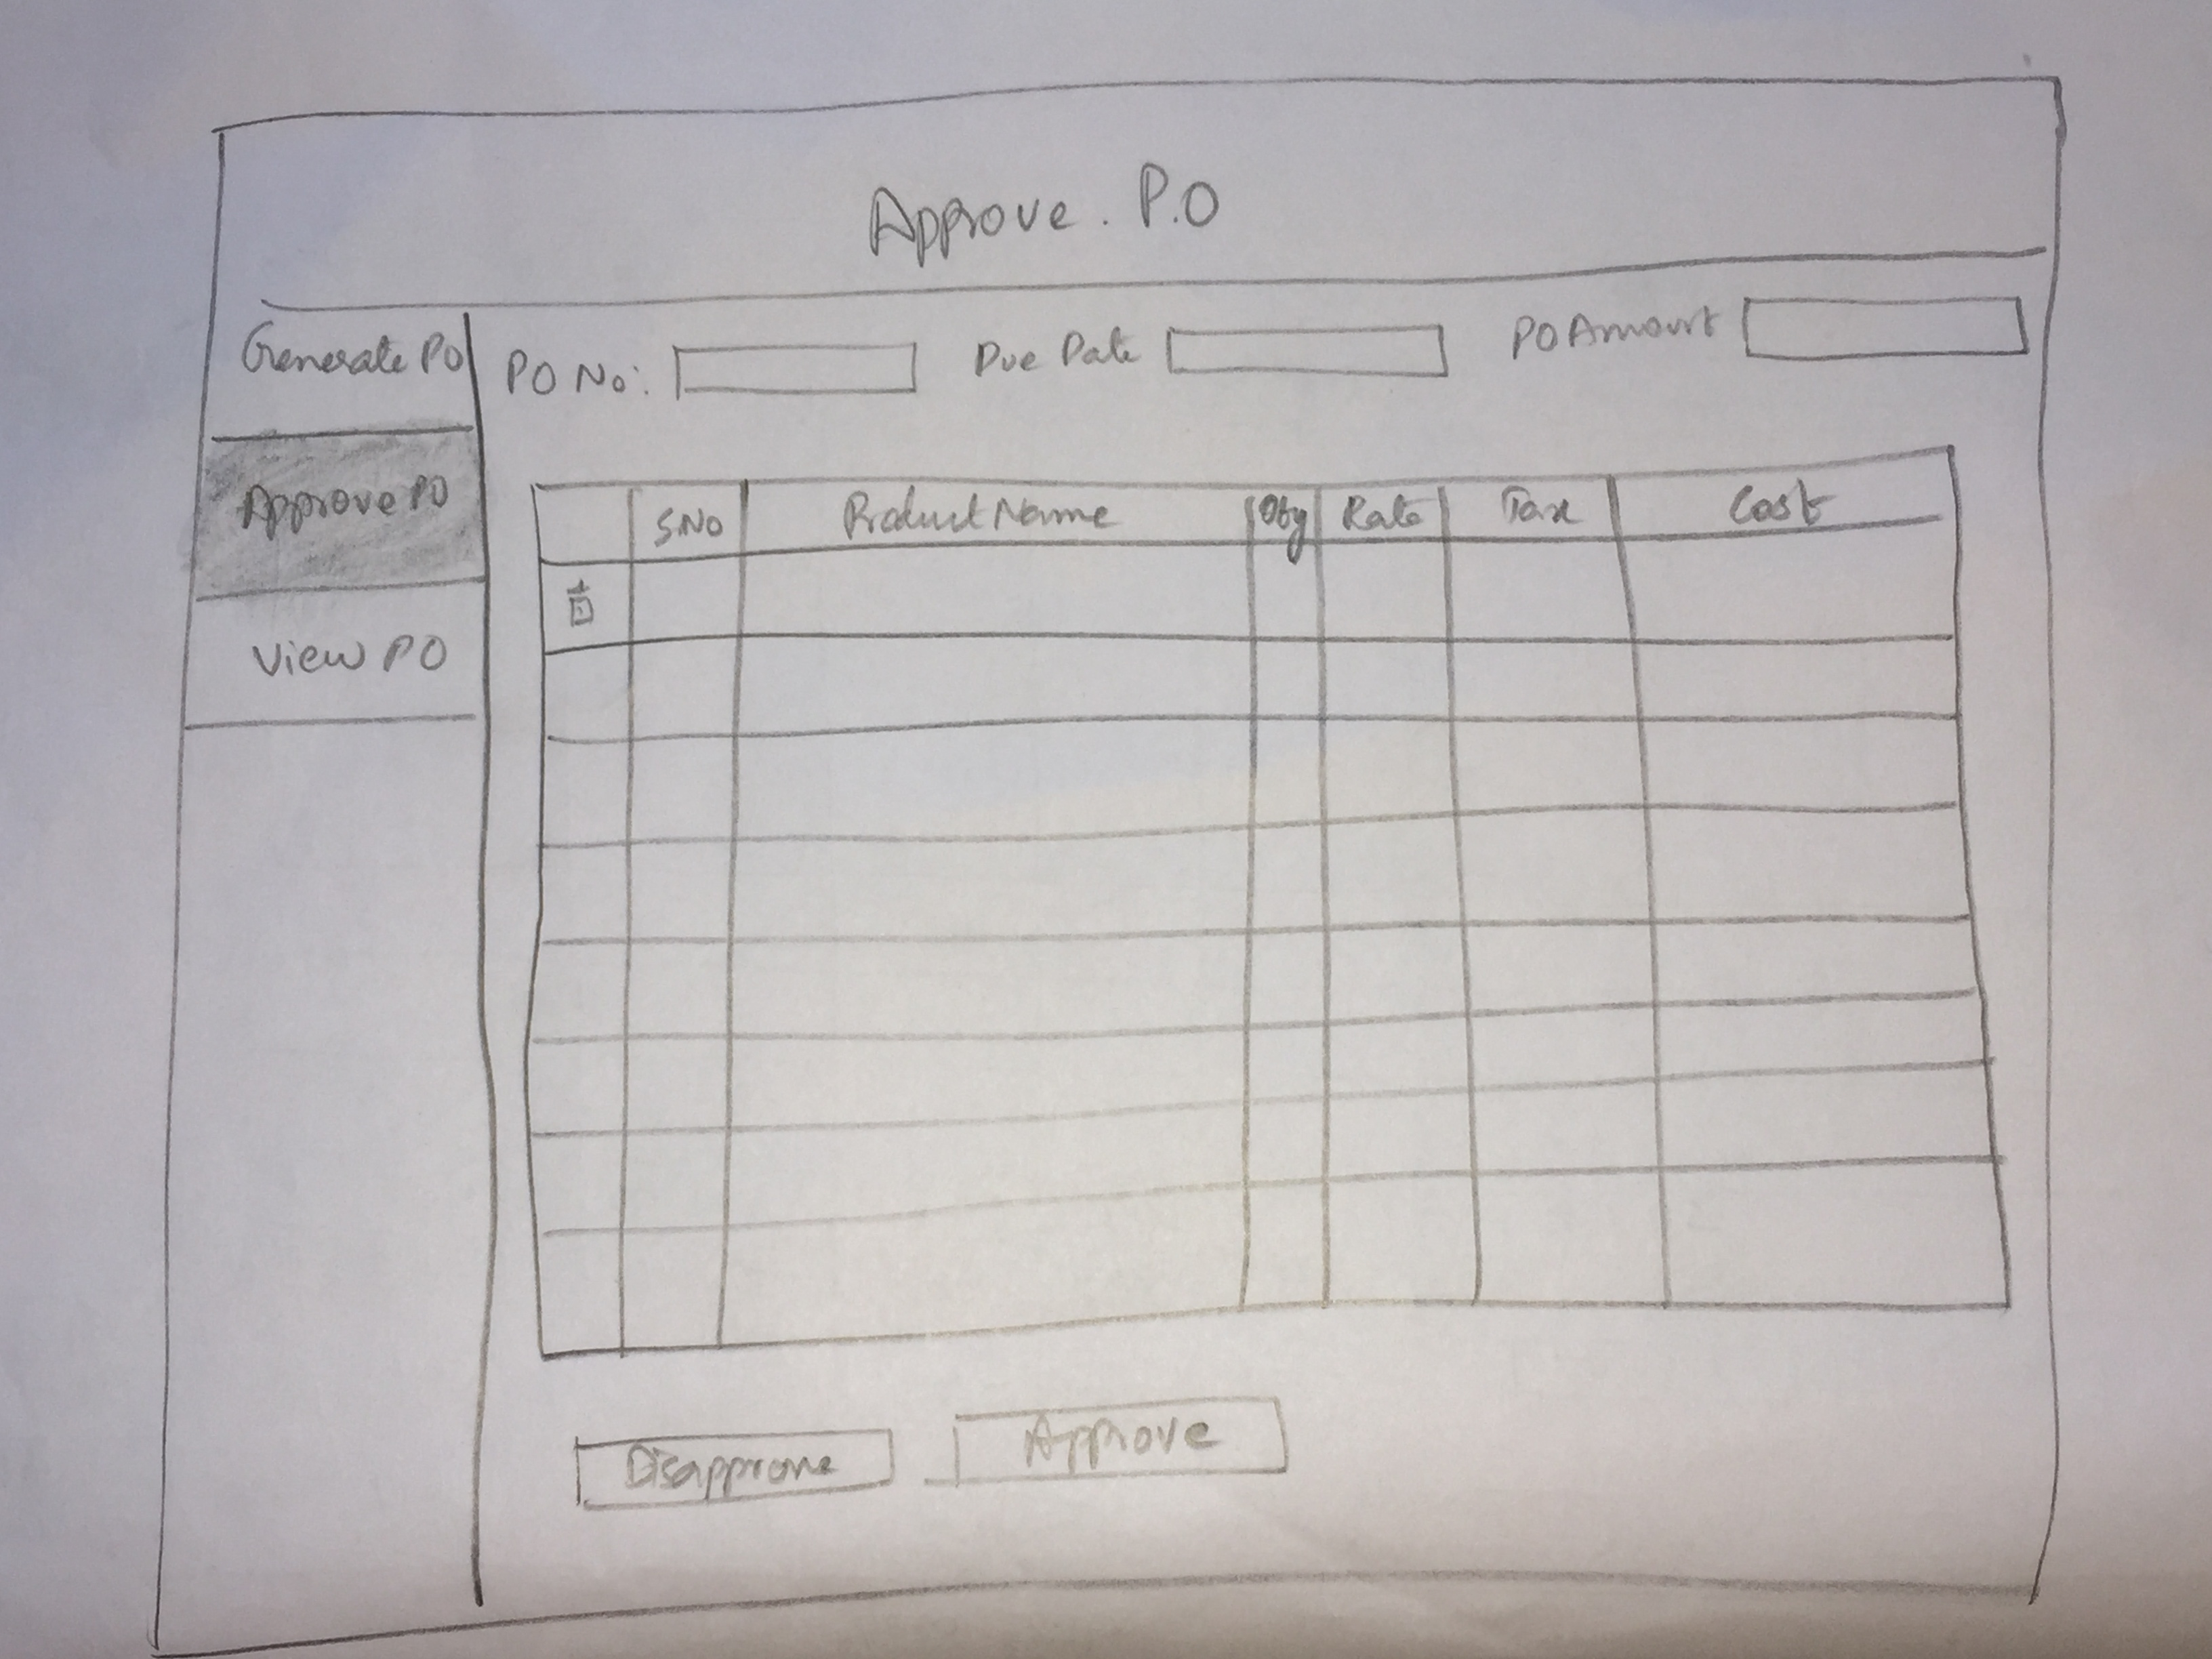 Approve. P.O
Generate PO
Approve PO
View PO
PO No: Due Date PO Amount
S.No Product Name Qty Rate Tax Cost
Disapprove Approve